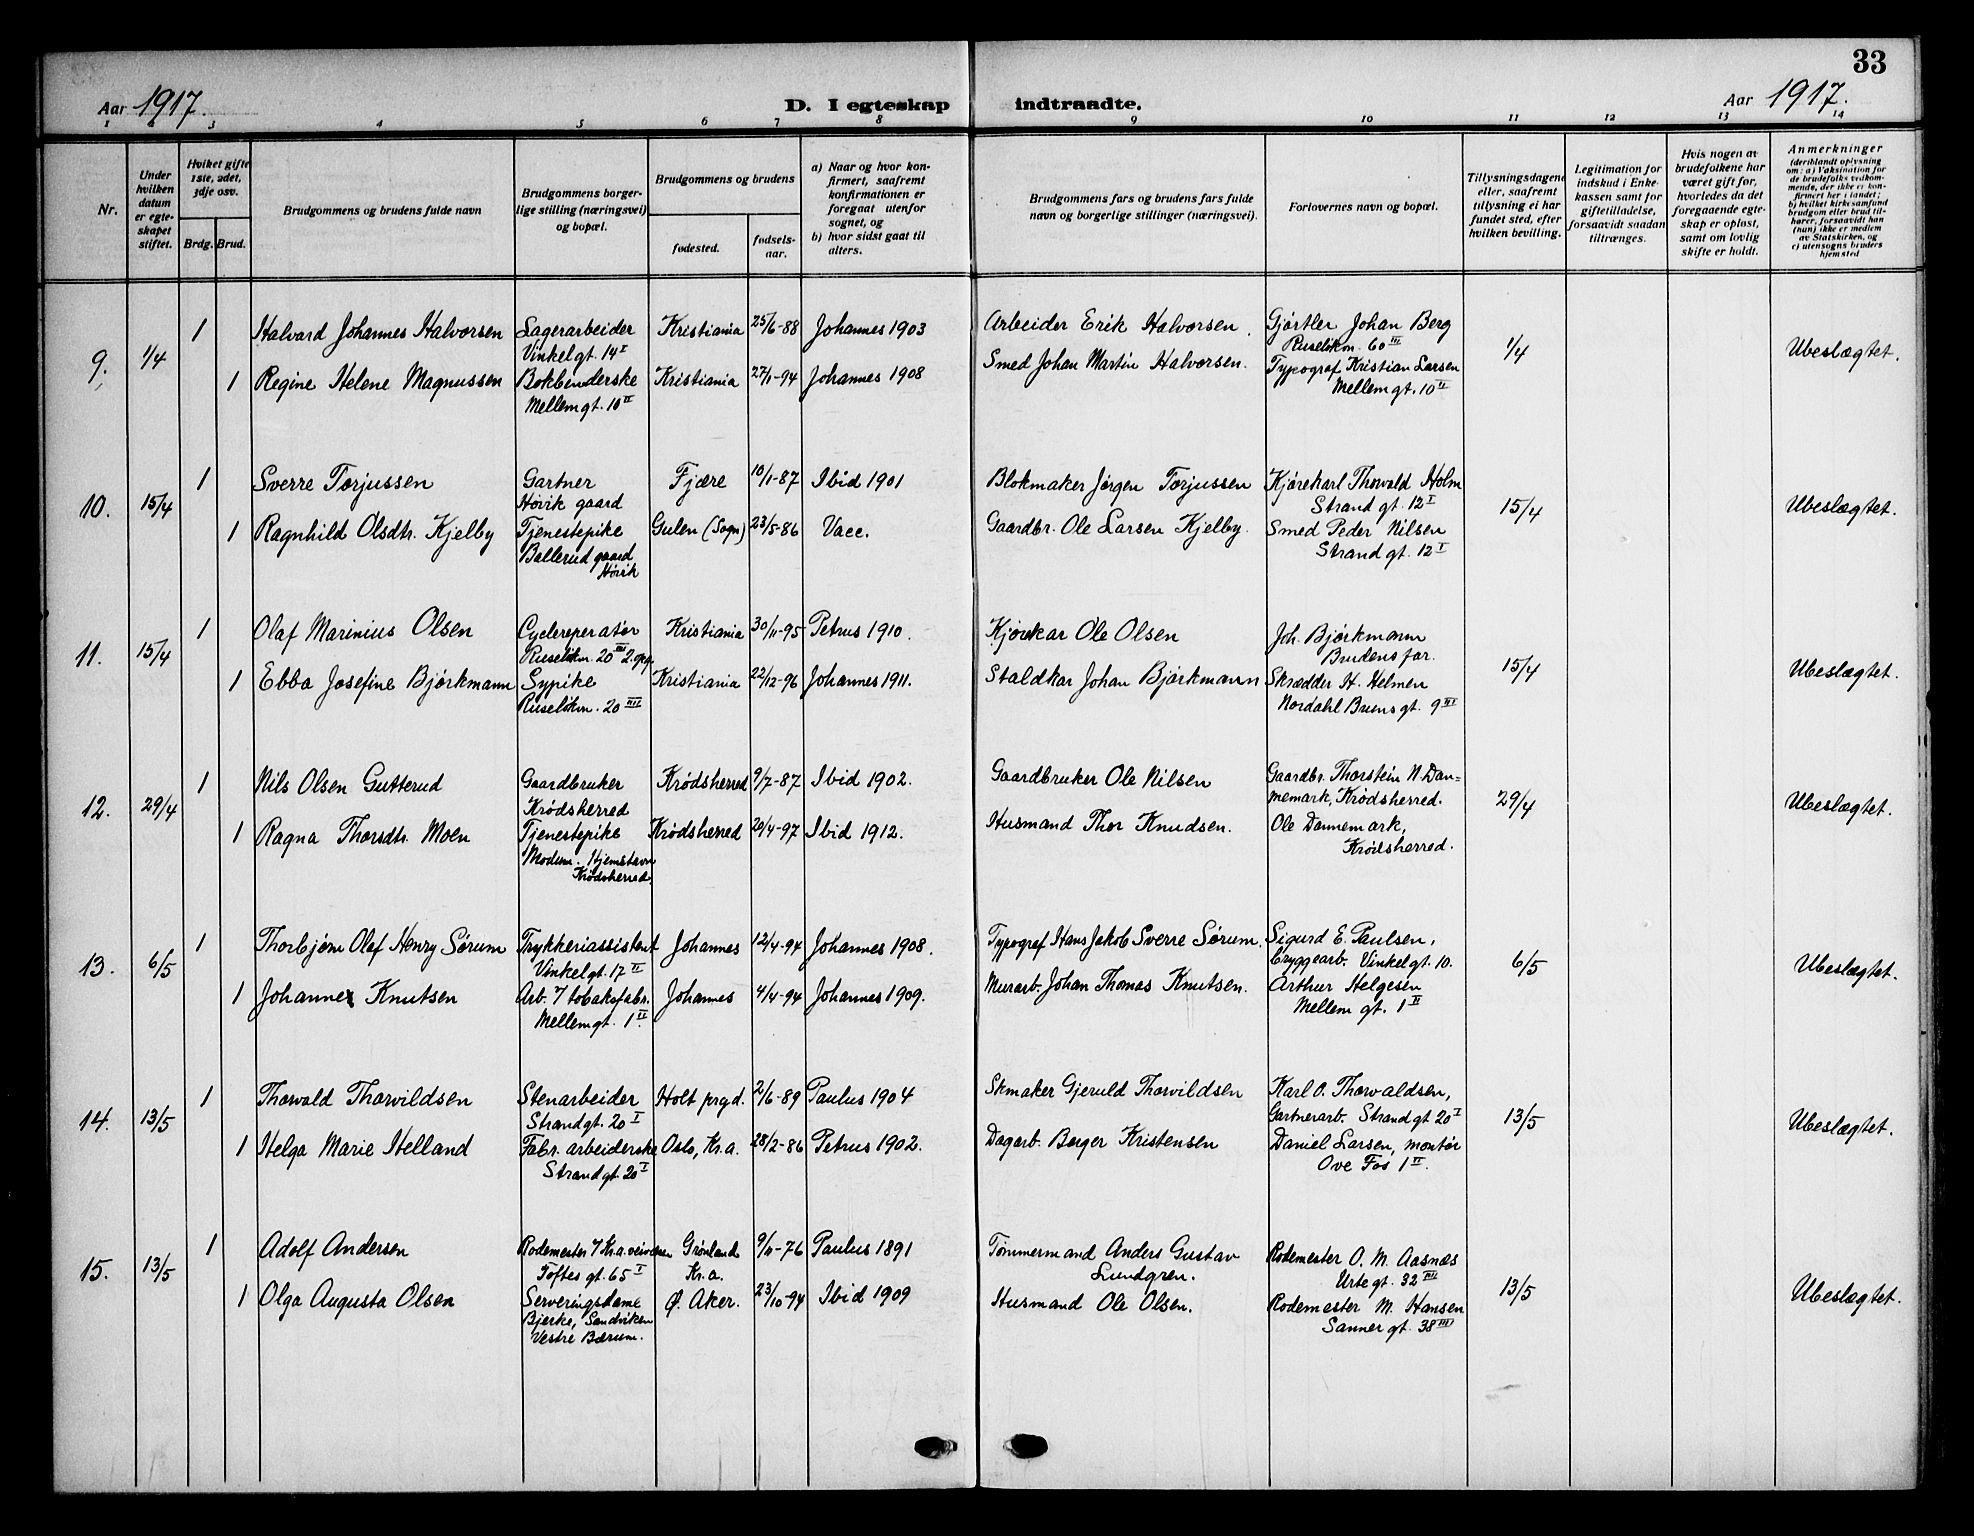 33
Aar 1917.
D. I egteskap indtraadte.
Aar 1917.
1 2 3 4 5 6 7 8 9 10 11 12 13 14
Nr.
Under hvilken datum er egteskapet stiftet.
Hvilket gifte 1ste, 2det, 3dje osv.
Brdg. Brud.
Brudgommens og brudens fulde navn
Brudgommens borgerlige stilling (næringsvei) og bopæl.
Brudgommens og brudens
fødested.
fødselsaar.
a) Naar og hvor konfirmert, saafremt konfirmationen er foregaat utenfor sognet, og
b) hvor sidst gaat til alters.
Brudgommens fars og brudens fars fulde navn og borgerlige stillinger (næringsvei).
Forlovernes navn og bopæl.
Tillysningsdagene eller, saafremt tillysning ei har fundet sted, efter hvilken bevilling.
Legitimation for indskud i Enkekassen samt for giftetilladelse, forsaavidt saadan tiltrænges.
Hvis nogen av brudefolkene har været gift før, hvorledes da det foregaaende egteskap er opløst, samt om lovlig skifte er holdt.
Anmerkninger
(deriblandt oplysning om: a) Vaksination for de brudefolks vedkommende, der ikke er konfirmert her i landet; b) hvilket kirkesamfund brudgom eller brud tilhører, forsaavidt han (hun) ikke er medlem av Statskirken, og c) utensogns bruders hjemsted
9. 1/4 1 Halvard Johannes Halvorsen Lagerarbeider Kristiania 25/6-88 Johannes 1903 Arbeider Erik Halvorsen. Gjørtler Johan Berg 1/4 Ubeslægtet.
Vinkelgt. 14 I Ruseløkvn. 60 III
1 Regine Helene Magnussen Bokbinderske Kristiania 27/1-94 Johannes 1908 Smed Johan Martin Halvorsen. Typograf Kristian Larsen
Mellemgt. 10 II Mellemgt. 10 II
10. 15/4 1 Sverre Torjussen Gartner Fjære 10/1-87 Ibid 1901 Blokmaker Jørgen Torjussen Kjørekarl Thorvald Holm 15/4 Ubeslægtet.
Høvik gaard Strand gt. 12 I
1 Ragnhild Olsdtr. Kjelby Tjenestepike Gulen (Sogn) 23/5-86 Vacc. Gaardbr. Ole Larsen Kjelby. Smed Peder Nilsen
Ballerud gaard Strand gt. 12 I
Høvik
11. 15/4 1 Olaf Marinius Olsen Cyclereperatør Kristiania 30/11-95 Petrus 1910. Kjørekar Ole Olsen Joh. Bjørkmann 15/4 Ubeslægtet.
Ruseløkvn. 20 III 2. opg. Brudens far.
1 Ebba Josefine Bjørkmann Sypike Kristiania 22/12-96 Johannes 1911. Staldkar Johan Bjørkmann Skrædder H. Helmen
Ruseløkvn. 20 III Nordahl Bruns gt. 9 III
12. 29/4 1 Nils Olsen Gutterud Gaardbruker Krødsherred 9/7-87 Ibid 1902. Gaardbruker Ole Nilsen Gaardbr. Thorstein N. Dan- 29/4 Ubeslægtet.
Krødsherred nemark, Krødsherred.
1 Ragna Thorsdtr. Moen Tjenestepike Krødsherred 20/4-97 Ibid 1912. Husmand Thor Knudsen. Ole Dannemark,
Modum. Hjemstavn Krødsherred.
Krødsherred.
13. 6/5 1 Thorbjørn Olaf Henry Sørum Trykkeriassistent Johannes 12/4-94 Johannes 1908. Typograf Hans Jakob Sverre Sørum. Sigurd E. Paulsen, 6/5 Ubeslægtet.
Vinkelgt. 17 II bryggearb. Vinkelgt. 10.
1 Johanne Knutsen Arb. v/ tobaksfabr. Johannes 4/4-94 Johannes 1909. Murarb. Johan Thomas Knutsen. Arthur Helgesen
Mellemgt. 1 II. Mellem gt. 1 II
14. 13/5 1 Thorvald Thorvildsen Stenarbeider Holt prgd. 2/6-89 Paulus 1904 Skmaker Gjeruld Thorvildsen Karl O. Thorvaldsen, 13/5 Ubeslægtet.
Strandgt. 20 I Gartnerarb. Strandgt 20 I
1 Helga Marie Helland Fabr. arbeiderske Oslo, Kr.a. 28/2-86 Petrus 1902. Dagarb. Berger Kristensen Daniel Larsen, montør
Strandgt. 20 I Ove Fos 1 II.
15. 13/5 1 Adolf Andersen Rodemester v/ Kr.a. veivæsen Grønland 9/11-76 Paulus 1891 Tømmermand Anders Gustav Rodemester O. M. Aasnæs 13/5 Ubeslægtet.
Toftes gt. 65 I Kr.a. Lundgren. Urtegt. 32 III
1 Olga Augusta Olsen Serveringsdame Ø. Aker. 23/10-94 Ibid 1909 Husmand Ole Olsen. Rodemester M. Hansen
Bjerke, Sandviken Sanner gt. 38 III
Vestre Bærum.